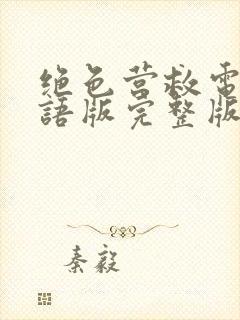 绝色营救電
語版完整版
秦毅